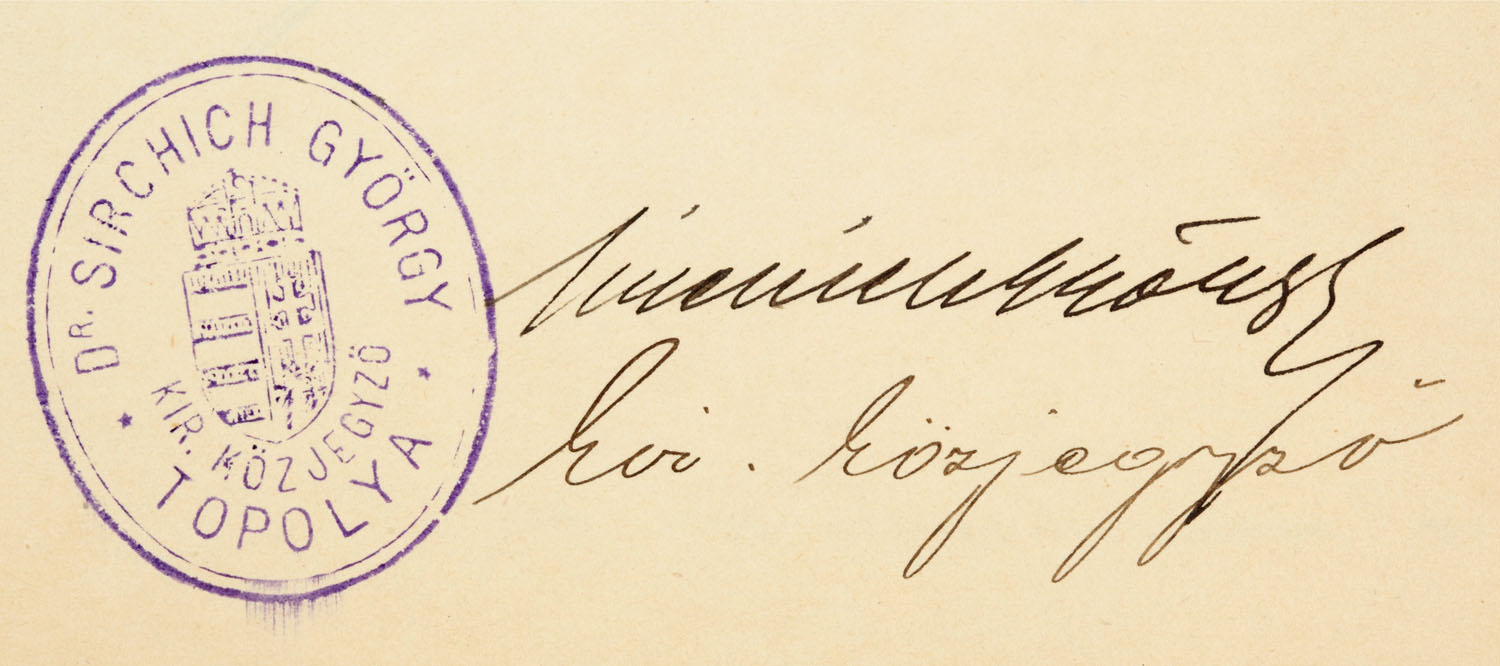 DR. SIRCHICH GYÖRGY
KIR. KÖZJEGYZŐ
TOPOLYA
kir. közjegyző